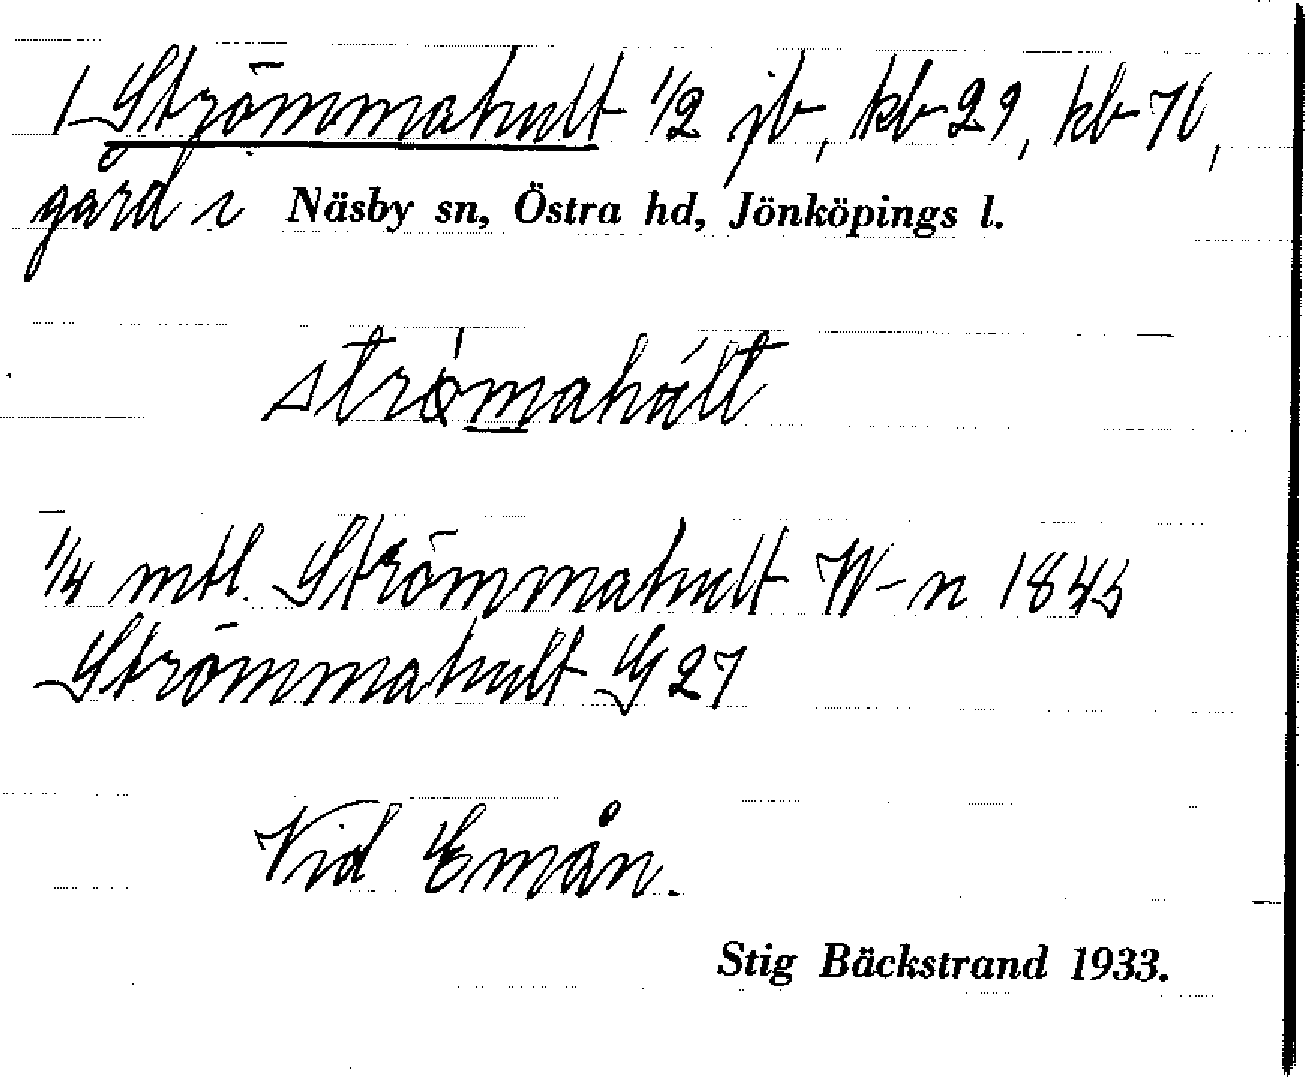 1 Strömmahult 1/2 jb, kb 29, kb 76,
gård i Näsby sn, Östra hd, Jönköpings l.
strø̀mahúlt
1/4 mtl. Strömmahult W-n 1845
Strömmahult G 27
Vid Emån.
Stig Bäckstrand 1933.